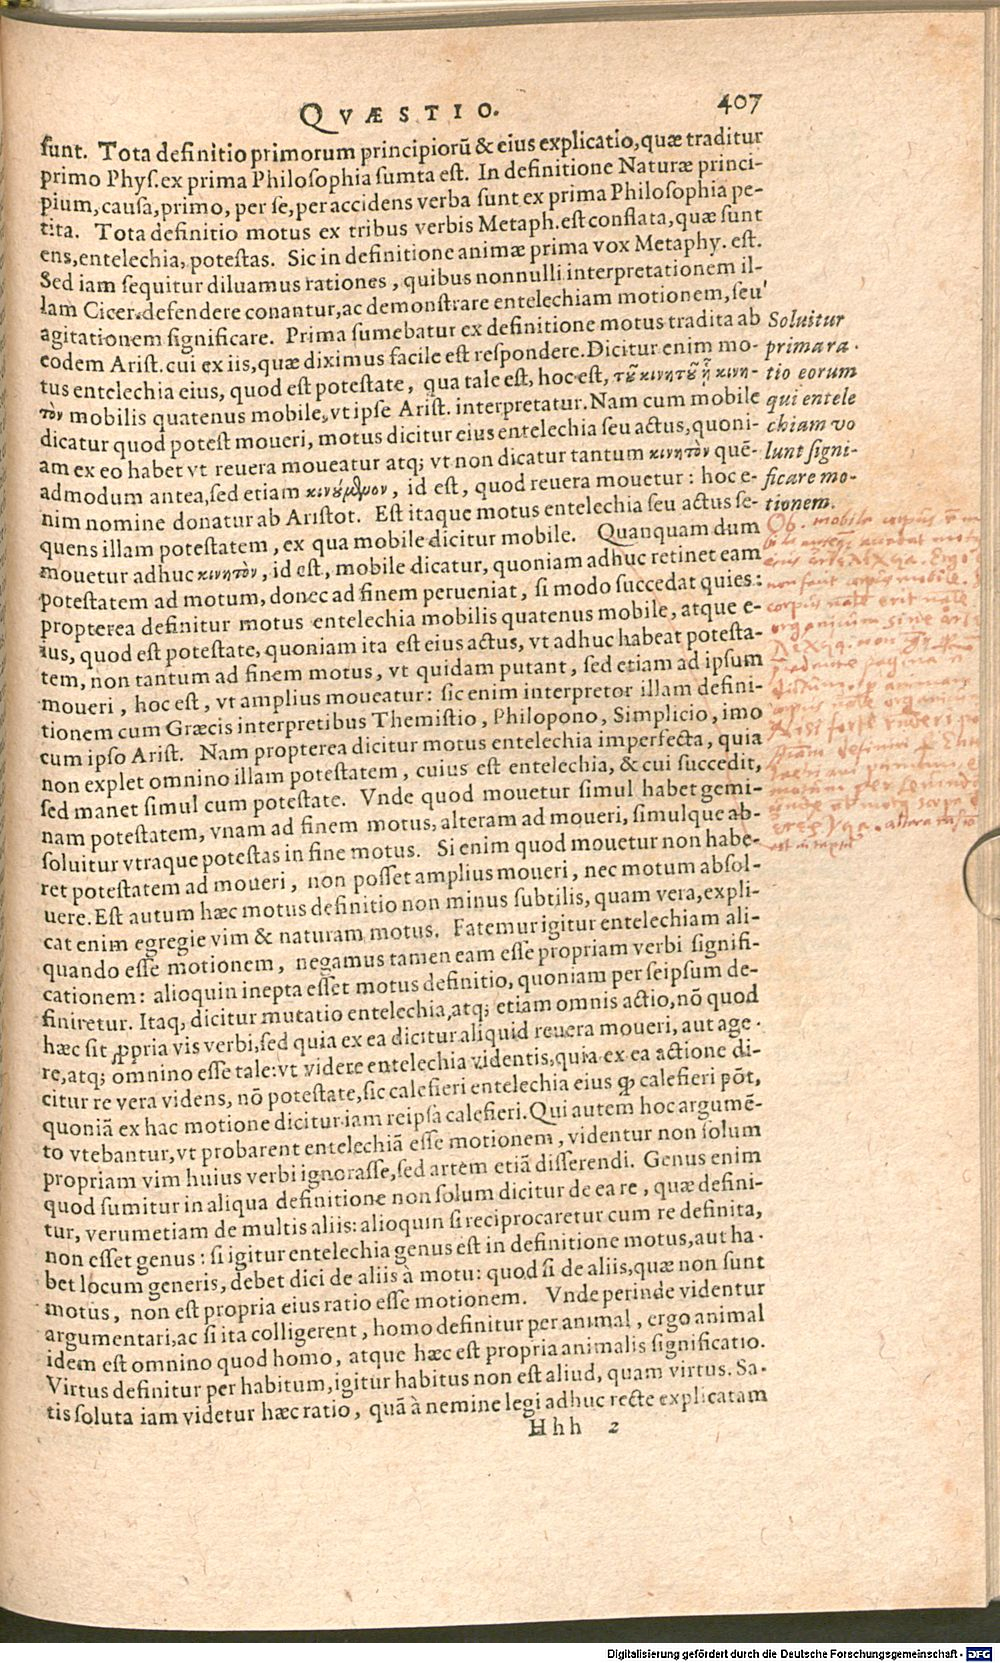 QVÆSTIO.
407
sunt. Tota definitio primorum principiorū & eius explicatio, quæ traditur
primo Phys. ex prima Philosophia sumta est. In definitione Naturæ princi-
pium, causa, primo, per se, per accidens verba sunt ex prima Philosophia pe-
tita. Tota definitio motus ex tribus verbis Metaph. est conflata, quæ sunt
ens, entelechia, potestas. Sic in definitione animæ prima vox Metaphy. est.
Sed iam sequitur diluamus rationes, quibus nonnulli interpretationem il-
lam Cicer. defendere conantur, ac demonstrare entelechiam motionem, seu
agitationem significare. Prima sumebatur ex definitione motus tradita ab
eodem Arist. cui ex iis, quæ diximus facile est respondere. Dicitur enim mo-
tus entelechia eius, quod est potestate, qua tale est, hoc est, τοῦ κινητοῦ ᾗ κινη-
τὸν mobilis quatenus mobile, vt ipse Arist. interpretatur. Nam cum mobile
dicatur quod potest moueri, motus dicitur eius entelechia seu actus, quoni-
am ex eo habet vt reuera moueatur atq; vt non dicatur tantum κινητὸν quē-
admodum antea, sed etiam κινούμενον, id est, quod reuera mouetur: hoc e-
nim nomine donatur ab Aristot. Est itaque motus entelechia seu actus se-
quens illam potestatem, ex qua mobile dicitur mobile. Quanquam dum
mouetur adhuc κινητὸν, id est, mobile dicatur, quoniam adhuc retinet eam
potestatem ad motum, donec ad finem perueniat, si modo succedat quies:
propterea definitur motus entelechia mobilis quatenus mobile, atque e-
ius, quod est potestate, quoniam ita est eius actus, vt adhuc habeat potesta-
tem, non tantum ad finem motus, vt quidam putant, sed etiam ad ipsum
moueri, hoc est, vt amplius moueatur: sic enim interpretor illam defini-
tionem cum Græcis interpretibus Themistio, Philopono, Simplicio, imo
cum ipso Arist. Nam propterea dicitur motus entelechia imperfecta, quia
non explet omnino illam potestatem, cuius est entelechia, & cui succedit,
sed manet simul cum potestate. Vnde quod mouetur simul habet gemi-
nam potestatem, vnam ad finem motus, alteram ad moueri, simulque ab-
soluitur vtraque potestas in fine motus. Si enim quod mouetur non habe-
ret potestatem ad moueri, non posset amplius moueri, nec motum absol-
uere. Est autum hæc motus definitio non minus subtilis, quam vera, expli-
cat enim egregie vim & naturam motus. Fatemur igitur entelechiam ali-
quando esse motionem, negamus tamen eam esse propriam verbi signifi-
cationem: alioquin inepta esset motus definitio, quoniam per seipsum de-
finiretur. Itaq; dicitur mutatio entelechia, atq; etiam omnis actio, nō quod
hæc sit ꝓpria vis verbi, sed quia ex ea dicitur aliquid reuera moueri, aut age-
re, atq; omnino esse tale: vt videre entelechia videntis, quia ex ea actione di-
citur re vera videns, nō potestate, sic calefieri entelechia eius qđ calefieri pōt,
quoniā ex hac motione dicitur iam reipsa calefieri. Qui autem hoc argumē-
to vtebantur, vt probarent entelechiā esse motionem, videntur non solum
propriam vim huius verbi ignorasse, sed artem etiā disserendi. Genus enim
quod sumitur in aliqua definitione non solum dicitur de ea re, quæ defini-
tur, verumetiam de multis aliis: alioquin si reciprocaretur cum re definita,
non esset genus: si igitur entelechia genus est in definitione motus, aut ha-
bet locum generis, debet dici de aliis à motu: quod si de aliis, quæ non sunt
motus, non est propria eius ratio esse motionem. Vnde perinde videntur
argumentari, ac si ita colligerent, homo definitur per animal, ergo animal
idem est omnino quod homo, atque hæc est propria animalis significatio.
Virtus definitur per habitum, igitur habitus non est aliud, quam virtus. Sa-
tis soluta iam videtur hæc ratio, quā à nemine legi adhuc recte explicatam
Hhh 2
Soluitur
prima ra-
tio eorum
qui entele
chiam vo
lunt signi-
ficare mo-
tionem.
Ob. mobile corpus
non sunt corpus mobile.
corpus erit
organicum sine
pagina
Digitalisierung gefördert durch die Deutsche Forschungsgemeinschaft - DFG